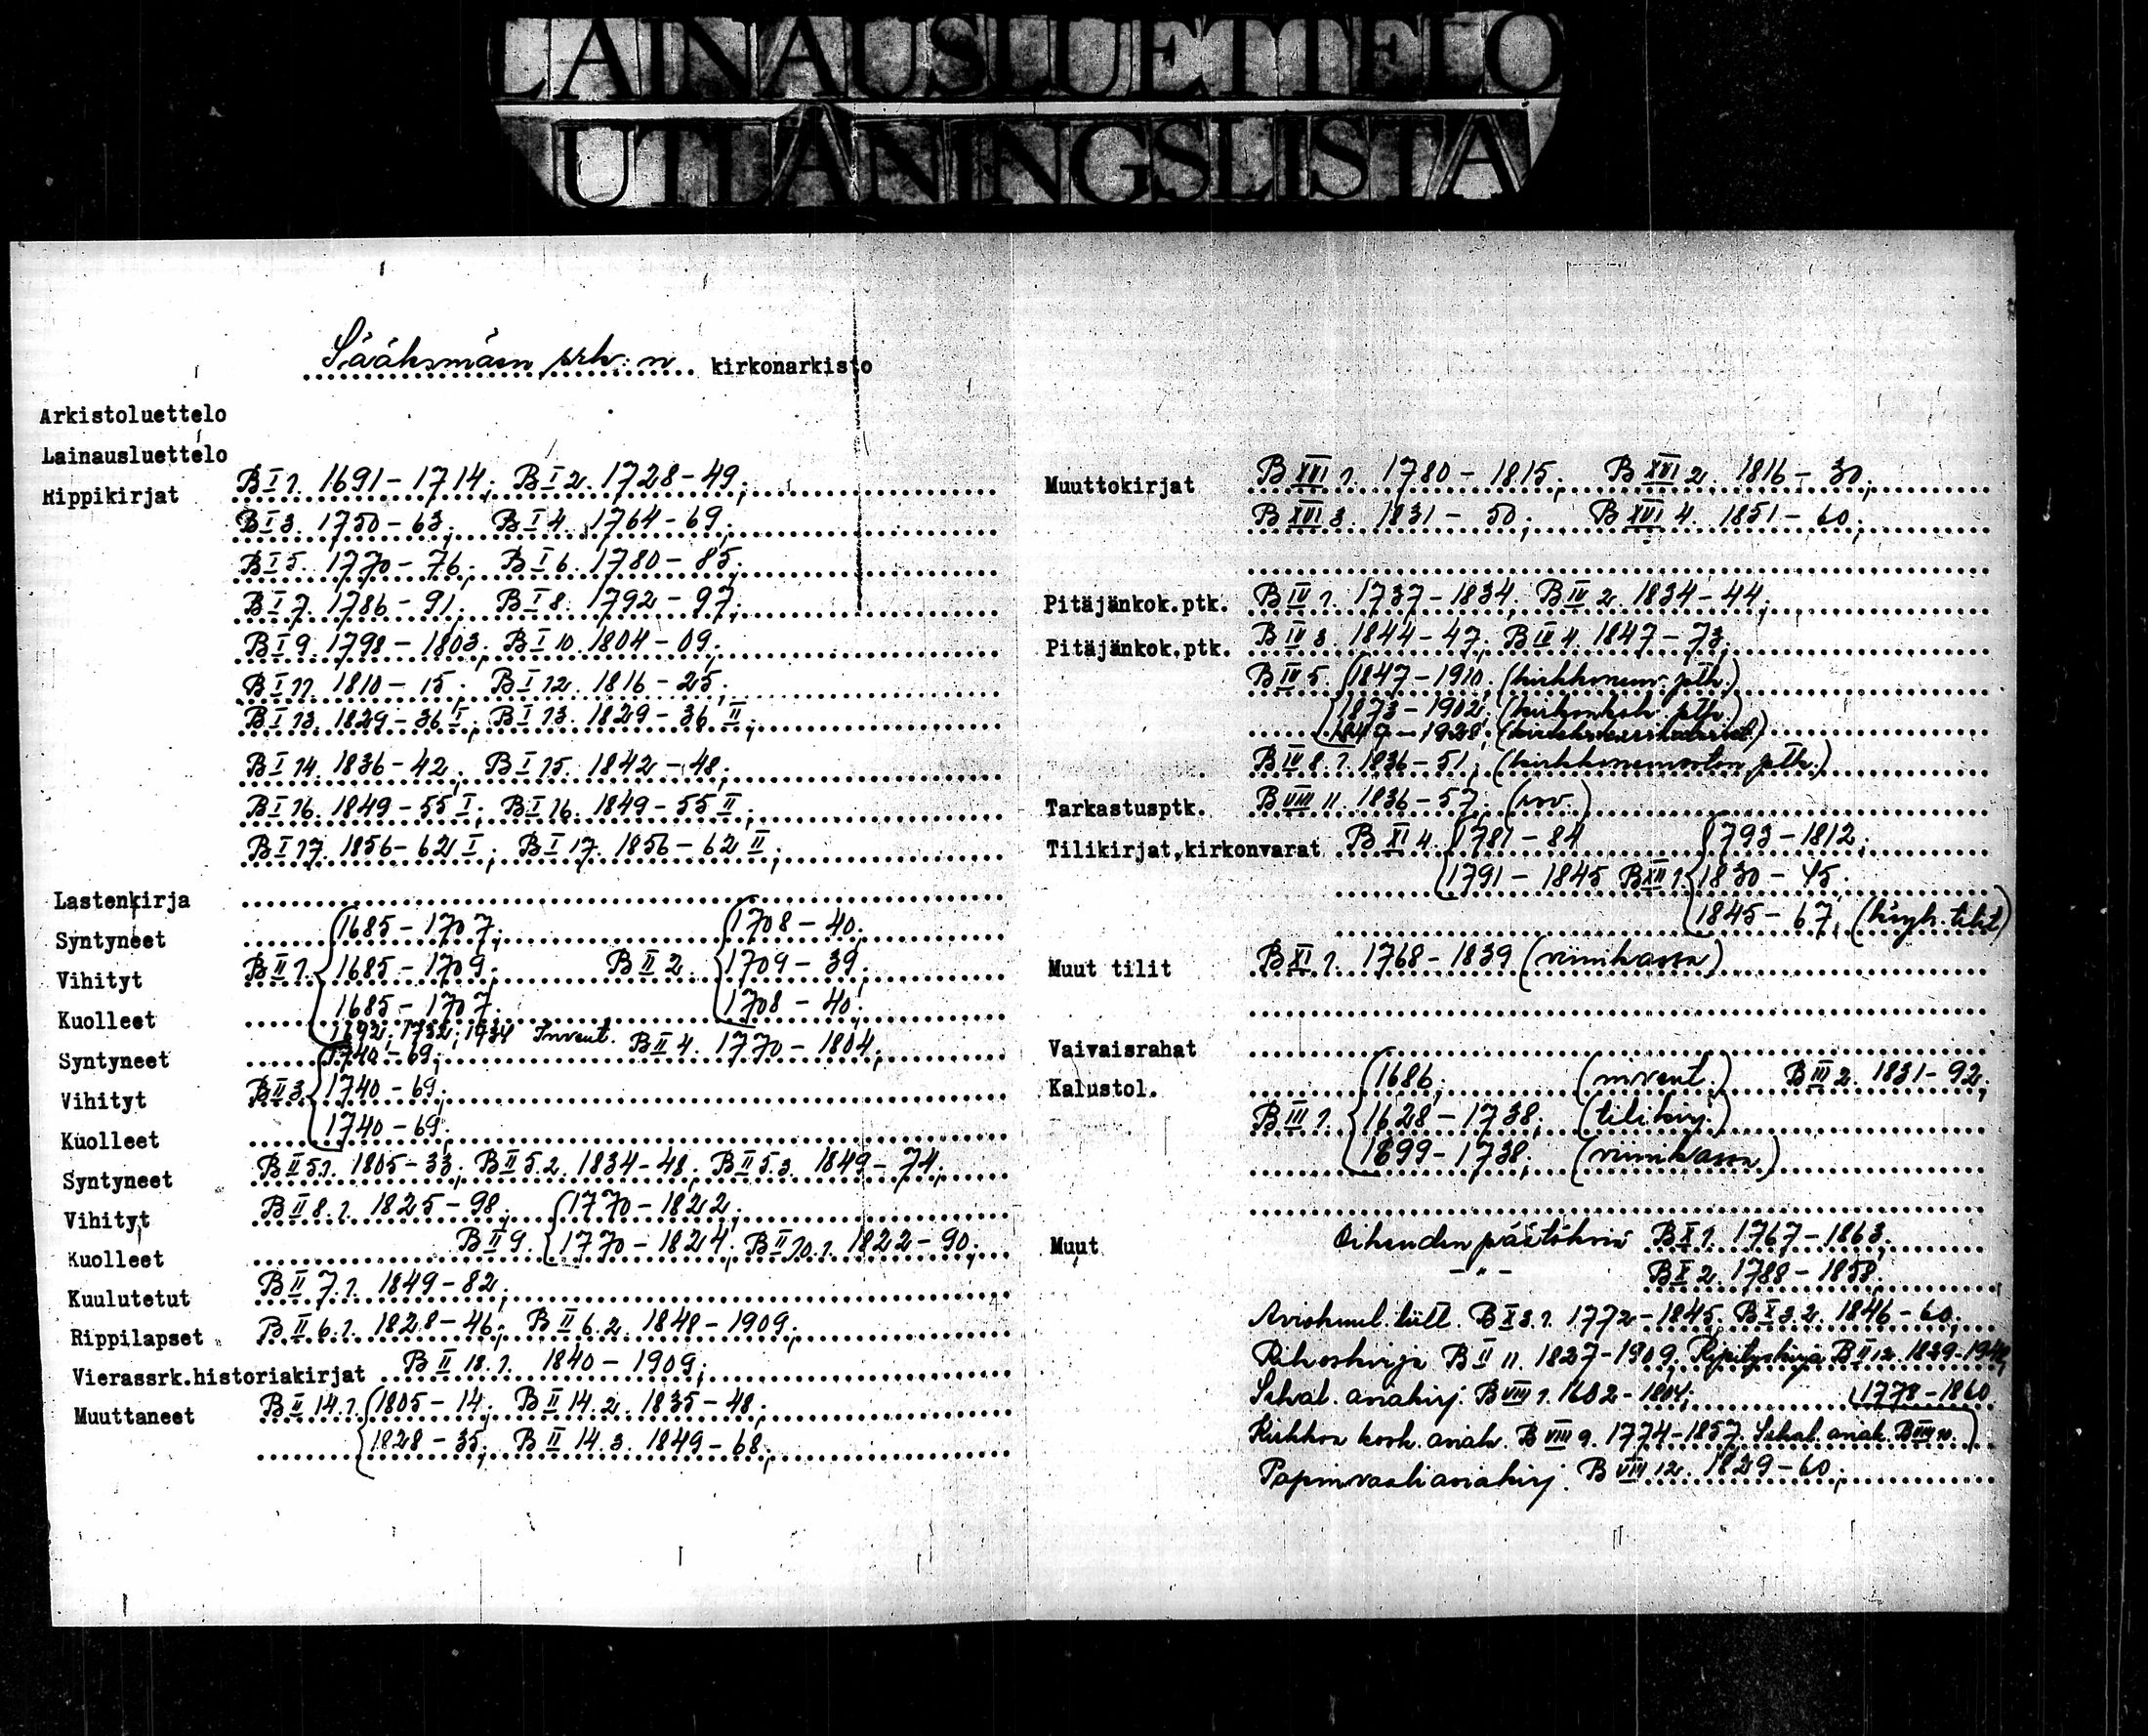 LAINAUSLUETTELO
UTLÅNINGSLISTA
Sääksmäen srk:n kirkonarkisto
Arkistoluettelo
Lainausluettelo
Rippikirjat B I 1. 1691-1714; B I 2. 1728-49;
B I 3. 1750-63; B I 4. 1764-69;
B I 5. 1770-76; B I 6. 1780-85;
B I 7. 1786-91; B I 8. 1792-97;
B I 9. 1798-1803; B I 10. 1804-09;
B I 11. 1810-15; B I 12. 1816-25;
B I 13. 1829-36 I; B I 13. 1829-36 II;
B I 14. 1836-42; B I 15. 1842-48;
B I 16. 1849-55 I; B I 16. 1849-55 II;
B I 17. 1856-62 I; B I 17. 1856-62 II;
Lastenkirja
Syntyneet 1685-1707; 1708-40;
Vihityt B II 1. 1685-1709; B II 2. 1709-39;
Kuolleet 1685-1707. 1708-40;
1692, 1732, 1734 Invent.
Syntyneet 1740-69; B II 4. 1770-1804;
Vihityt B II 3 1740-69;
Kuolleet 1740-69;
Syntyneet B II 5.1. 1805-33; B II 5.2. 1834-48; B II 5.3. 1849-74;
Vihityt B II 8.1. 1825-98; 1770-1822;
Kuolleet B II 9. 1770-1824; B II 10.1. 1822-90;
Kuulutetut B II 7.1. 1849-82;
Rippilapset B II 6.1. 1828-46; B II 6.2. 1848-1909;
Vierassrk.historiakirjat B II 18.1. 1840-1909;
Muuttaneet B II 14.1. 1805-14; B II 14.2. 1835-48;
1828-35; B II 14.3. 1849-68;
Muuttokirjat B XVI 1. 1780-1815; B XVI 2. 1816-30;
B XVI 3. 1831-50; B XVI 4. 1851-60;
Pitäjänkok.ptk. B IV 1. 1737-1834; B IV 2. 1834-44;
Pitäjänkok.ptk. B IV 3. 1844-47; B IV 4. 1847-73;
B IV 5. 1847-1910; (kirkkoneuv. ptk.)
1873-1902; (kirkonkok. ptk.)
-1928;
B IV 8.1. 1836-51; (kirkkoneuvoston ptk.)
Tarkastusptk. B VIII 11. 1836-57; (rov.)
Tilikirjat,kirkonvarat B XI 4. 1781-84 1793-1812;
1791-1845 B XII 1. 1830-45;
1845-67;
Muut tilit B XI 1. 1768-1839 (viinikassa)
Vaivaisrahat
Kalustol. 1686; (invent.) B III 2. 1831-92;
B III 1. 1628-1738; (tilikirj.)
1699-1738; (viinikassa)
Muut Oikeuden päätöksiä B X 1. 1767-1863;
-"- B X 2. 1788-1858;
B X 3.1. 1772-1845; B X 3.2. 1846-60;
Rikoskirja B II 11. 1827-1909; Ripityskirja B II 12. 1829-1948;
Sekal. asiakirj. B VIII 1. 1602-1804; 1778-1860
Kirkkoa kosk. asiak. B VIII 9. 1774-1857. Sekal. asiak. B VIII 10.
Papinvaaliasiakirj. B VIII 12. 1829-60;